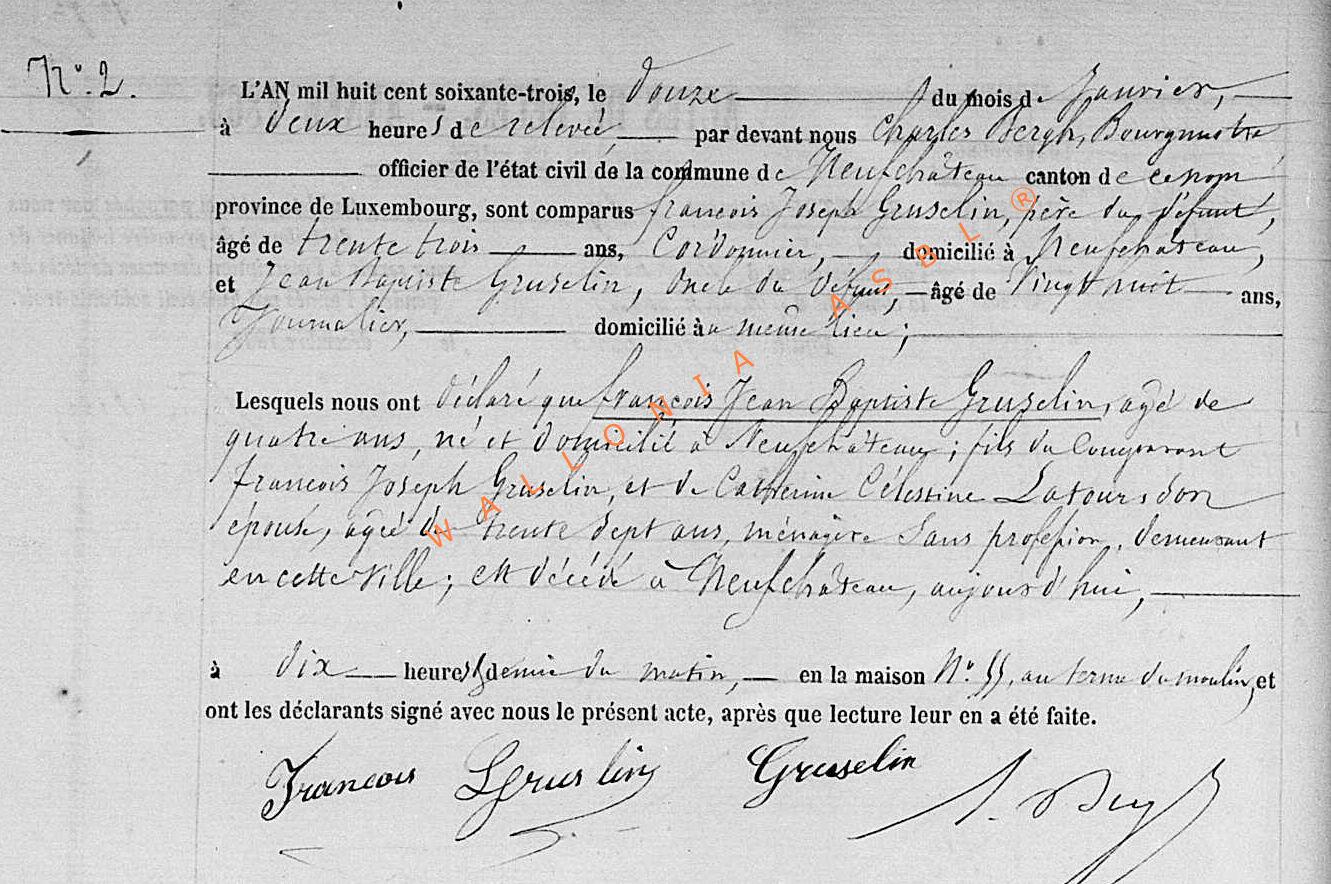 N° 2.
L'AN mil huit cent soixante-trois, le douze du mois de Janvier,
à deux heures de relevée par devant nous Charles Bergh, Bourgmestre
officier de l'état civil de la commune de Neufchâteau canton de ce nom
province de Luxembourg, sont comparus francois Joseph Gruselin, père du défunt,
âgé de trente trois ans, Cordonnier, domicilié à Neufchâteau,
et Jean Baptiste Gruselin, Oncle du défunt, âgé de vingt huit ans,
Journalier, domicilié au même lieu;
Lesquels nous ont déclaré que françois Jean Baptiste Gruselin, agé de
quatre ans, né et domicilié à Neufchâteau; fils du Comparant
francois Joseph Gruselin, et de Catherine Célestine Latour, son
épouse, agée de trente sept ans, ménagère sans profession, demeurant
en cette ville; est décédé à Neufchâteau, aujourd'hui,
à dix heures & demie du matin, en la maison N° 55, au terme du moulin, et
ont les déclarants signé avec nous le présent acte, après que lecture leur en a été faite.
Francois Gruslin Gruselin
WALLONIA ASBL ®